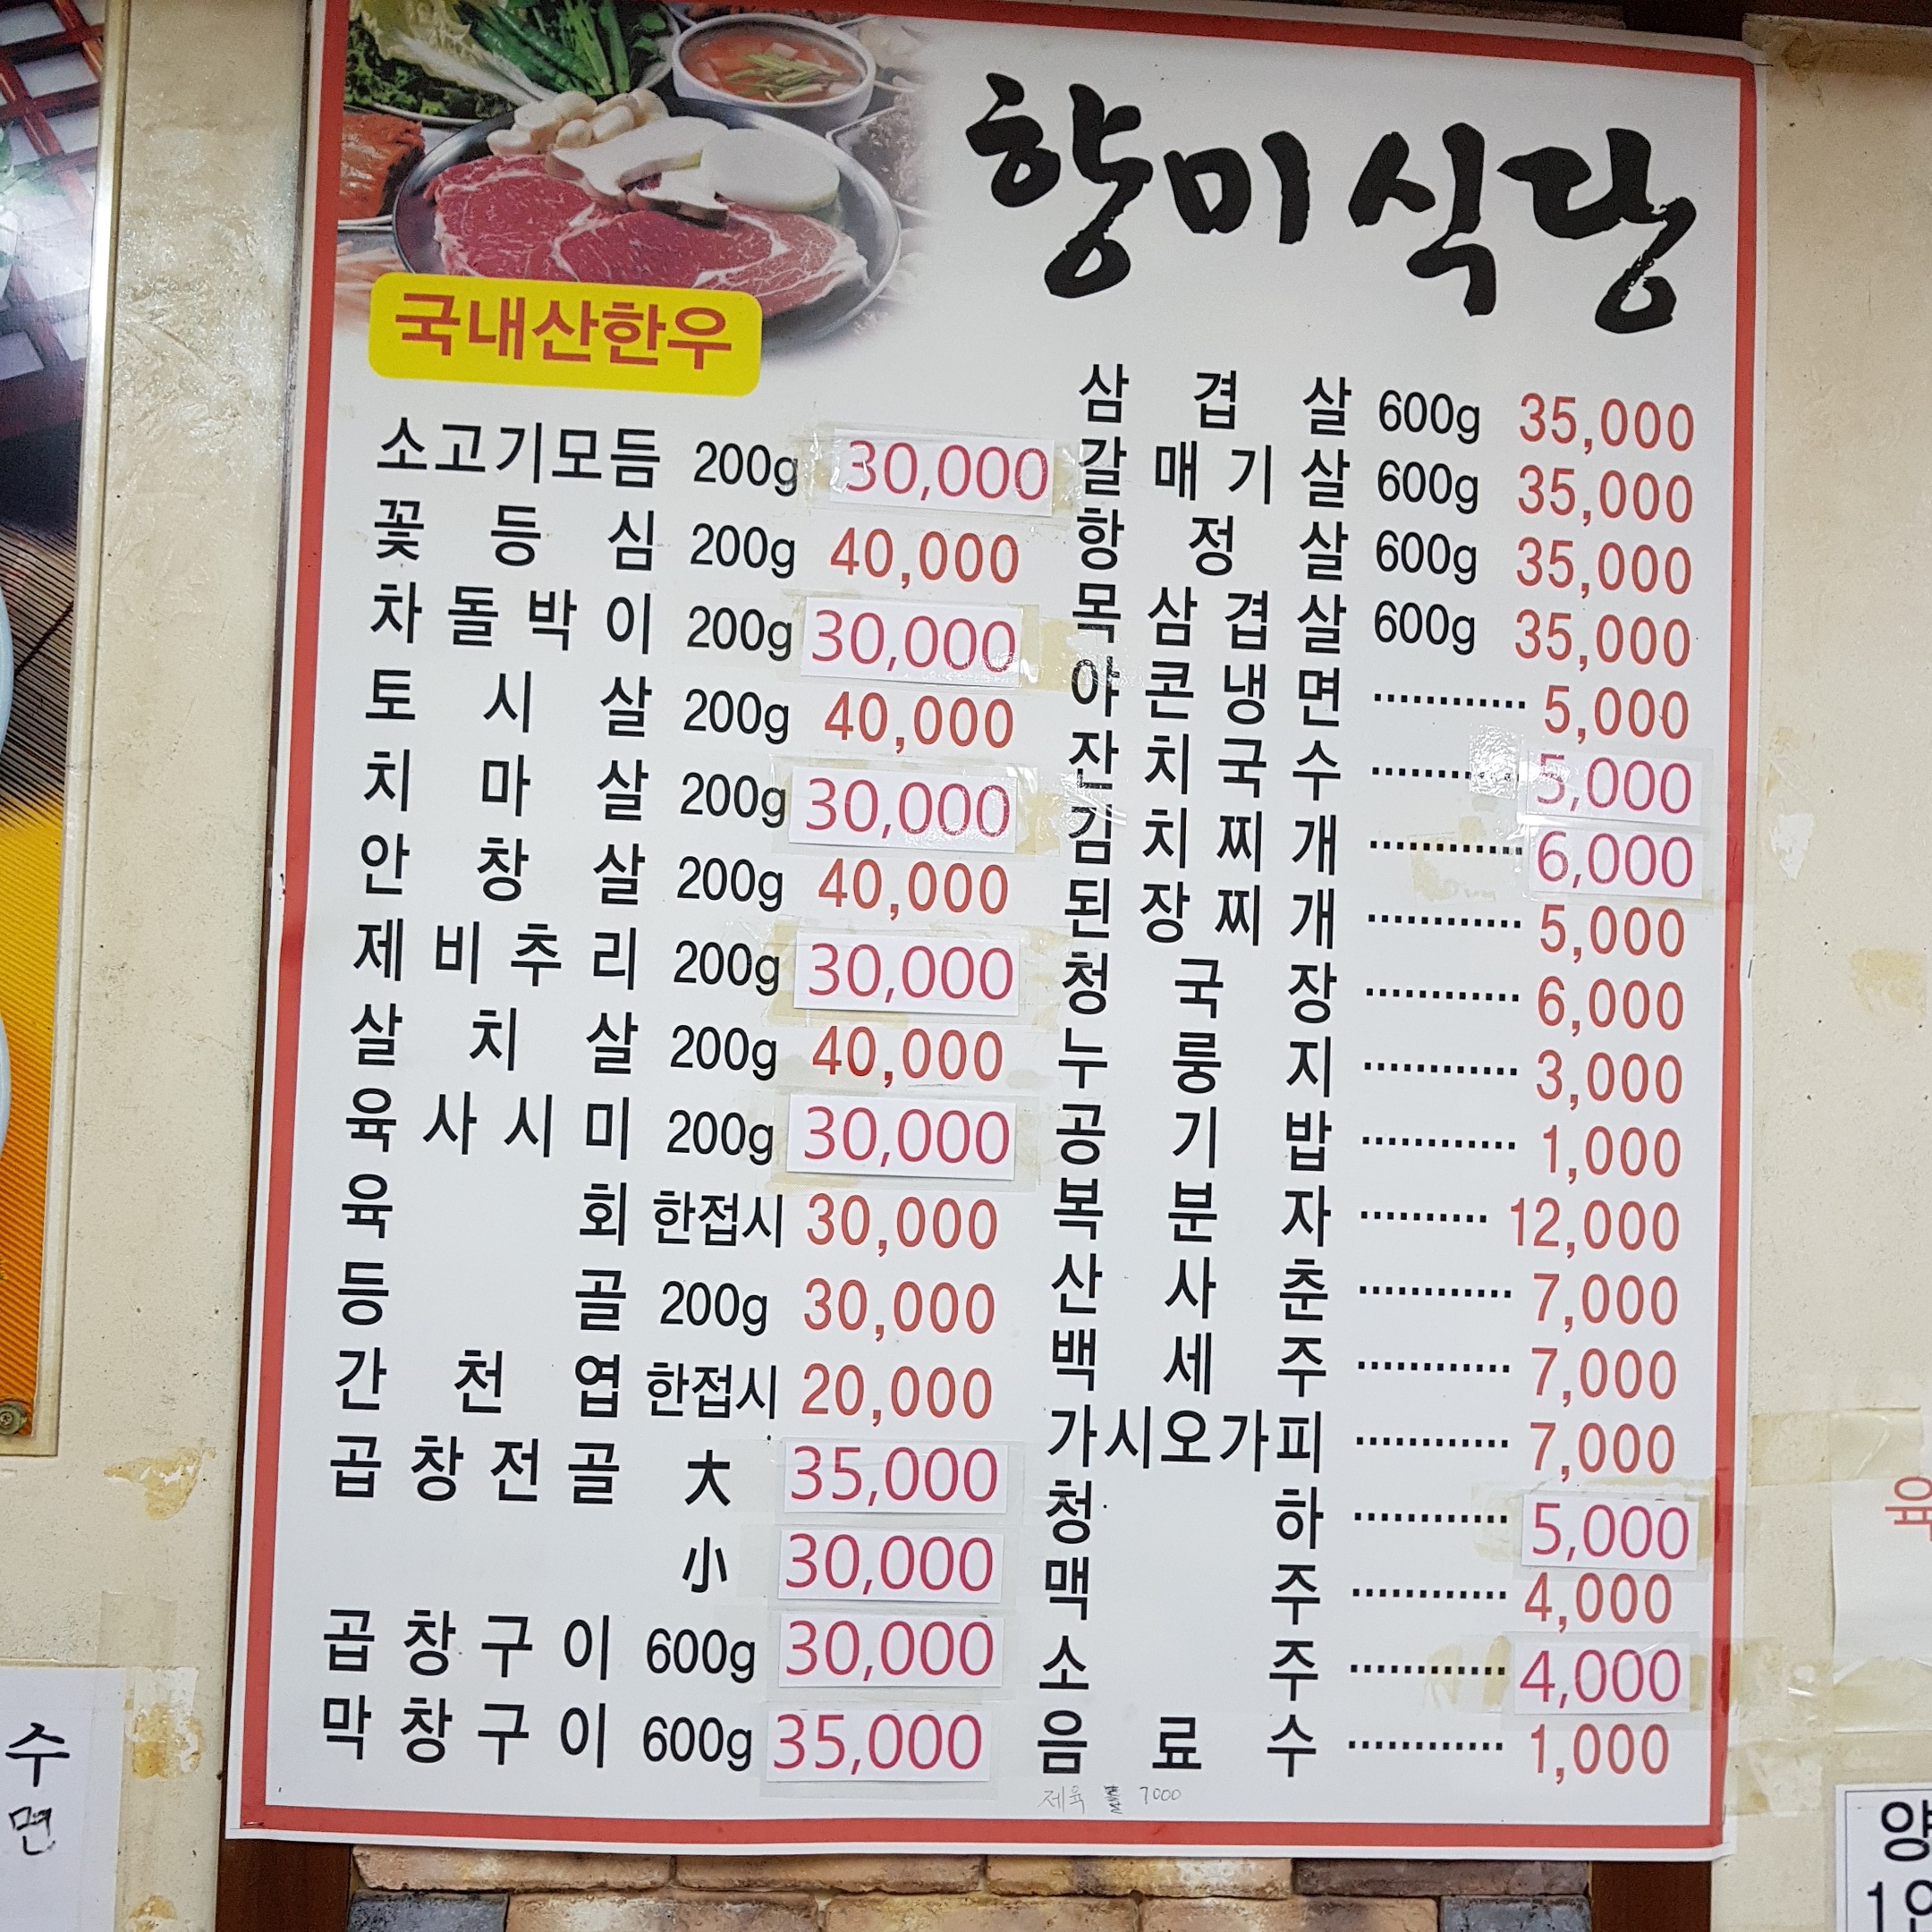 향미식당
국내산한우
소고기모듬 200g 30,000
꽃등심 200g 40,000
차돌박이 200g 30,000
토시살 200g 40,000
치마살 200g 30,000
안창살 200g 40,000
제비추리 200g 30,000
살치살 200g 40,000
육사시미 200g 30,000
육회 한접시 30,000
등골 200g 30,000
간천엽 한접시 20,000
곱창전골 大 35,000
小 30,000
곱창구이 600g 30,000
막창구이 600g 35,000
삼겹살 600g 35,000
갈매기살 600g 35,000
항정살 600g 35,000
목삼겹살 600g 35,000
야콘냉면 ············ 5,000
잔치국수 ············ 5,000
김치찌개 ············ 6,000
된장찌개 ············ 5,000
청국장 ············ 6,000
누룽지 ············ 3,000
공기밥 ············ 1,000
복분자 ·········· 12,000
산사춘 ············ 7,000
백세주 ············ 7,000
가시오가피 ············ 7,000
청하 ············ 5,000
맥주 ············ 4,000
소주 ············ 4,000
음료수 ············ 1,000
제육 7000
수
면
육
양